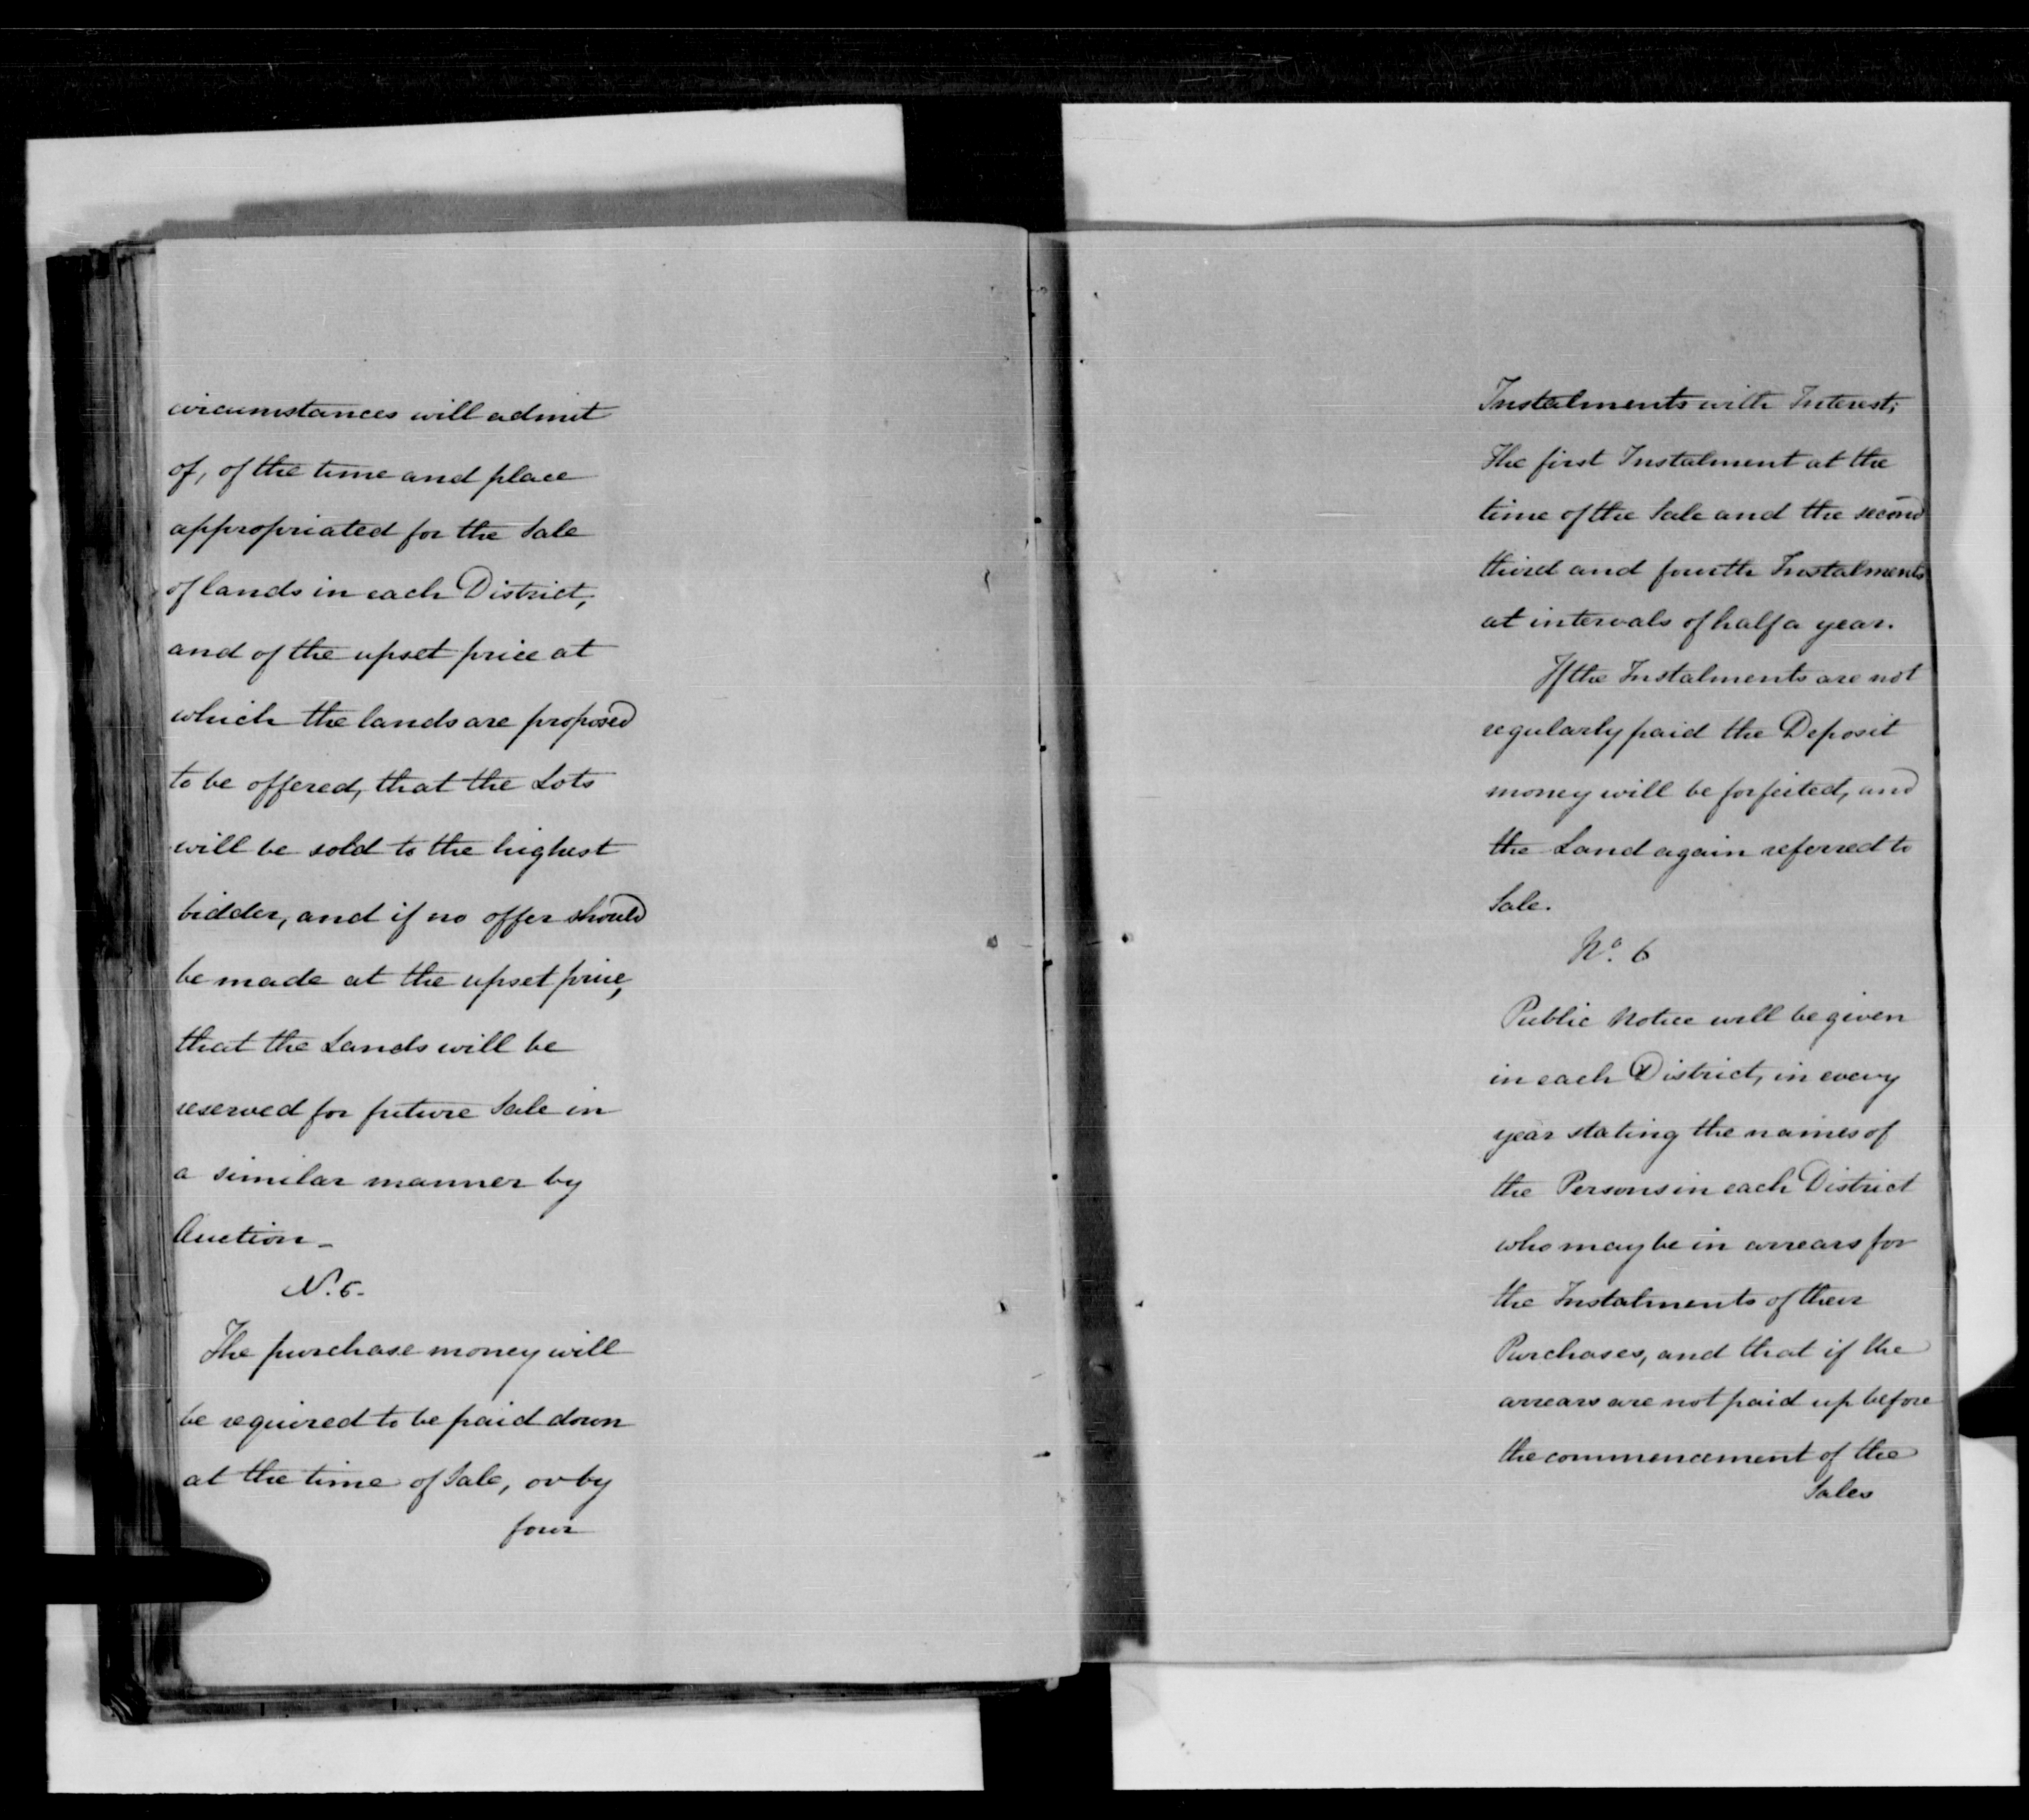 circumstances will admit
of, of the time and place
appropriated for the Sale
of lands in each District,
and of the upset price at
which the lands are proposed
to be offered, that the Lots
will be sold to the highest
bidder, and if no offer should
be made at the upset price,
that the Lands will be
reserved for future Sale in
a similar manner by
Auction -
N. 5.
The purchase money will
be required to be paid down
at the time of Sale, or by
four
Instalments with Interest;
The first Instalment at the
time of the Sale and the second
third and fourth Instalments
at intervals of half a year.
If the Instalments are not
regularly paid the Deposit
money will be forfeited, and
the Land again referred to
Sale.
No. 6
Public Notice will be given
in each District, in every
year stating the names of
the Persons in each District
who may be in arrears for
the Instalments of their
Purchases, and that if the
arrears are not paid up before
the commencement of the
Sales